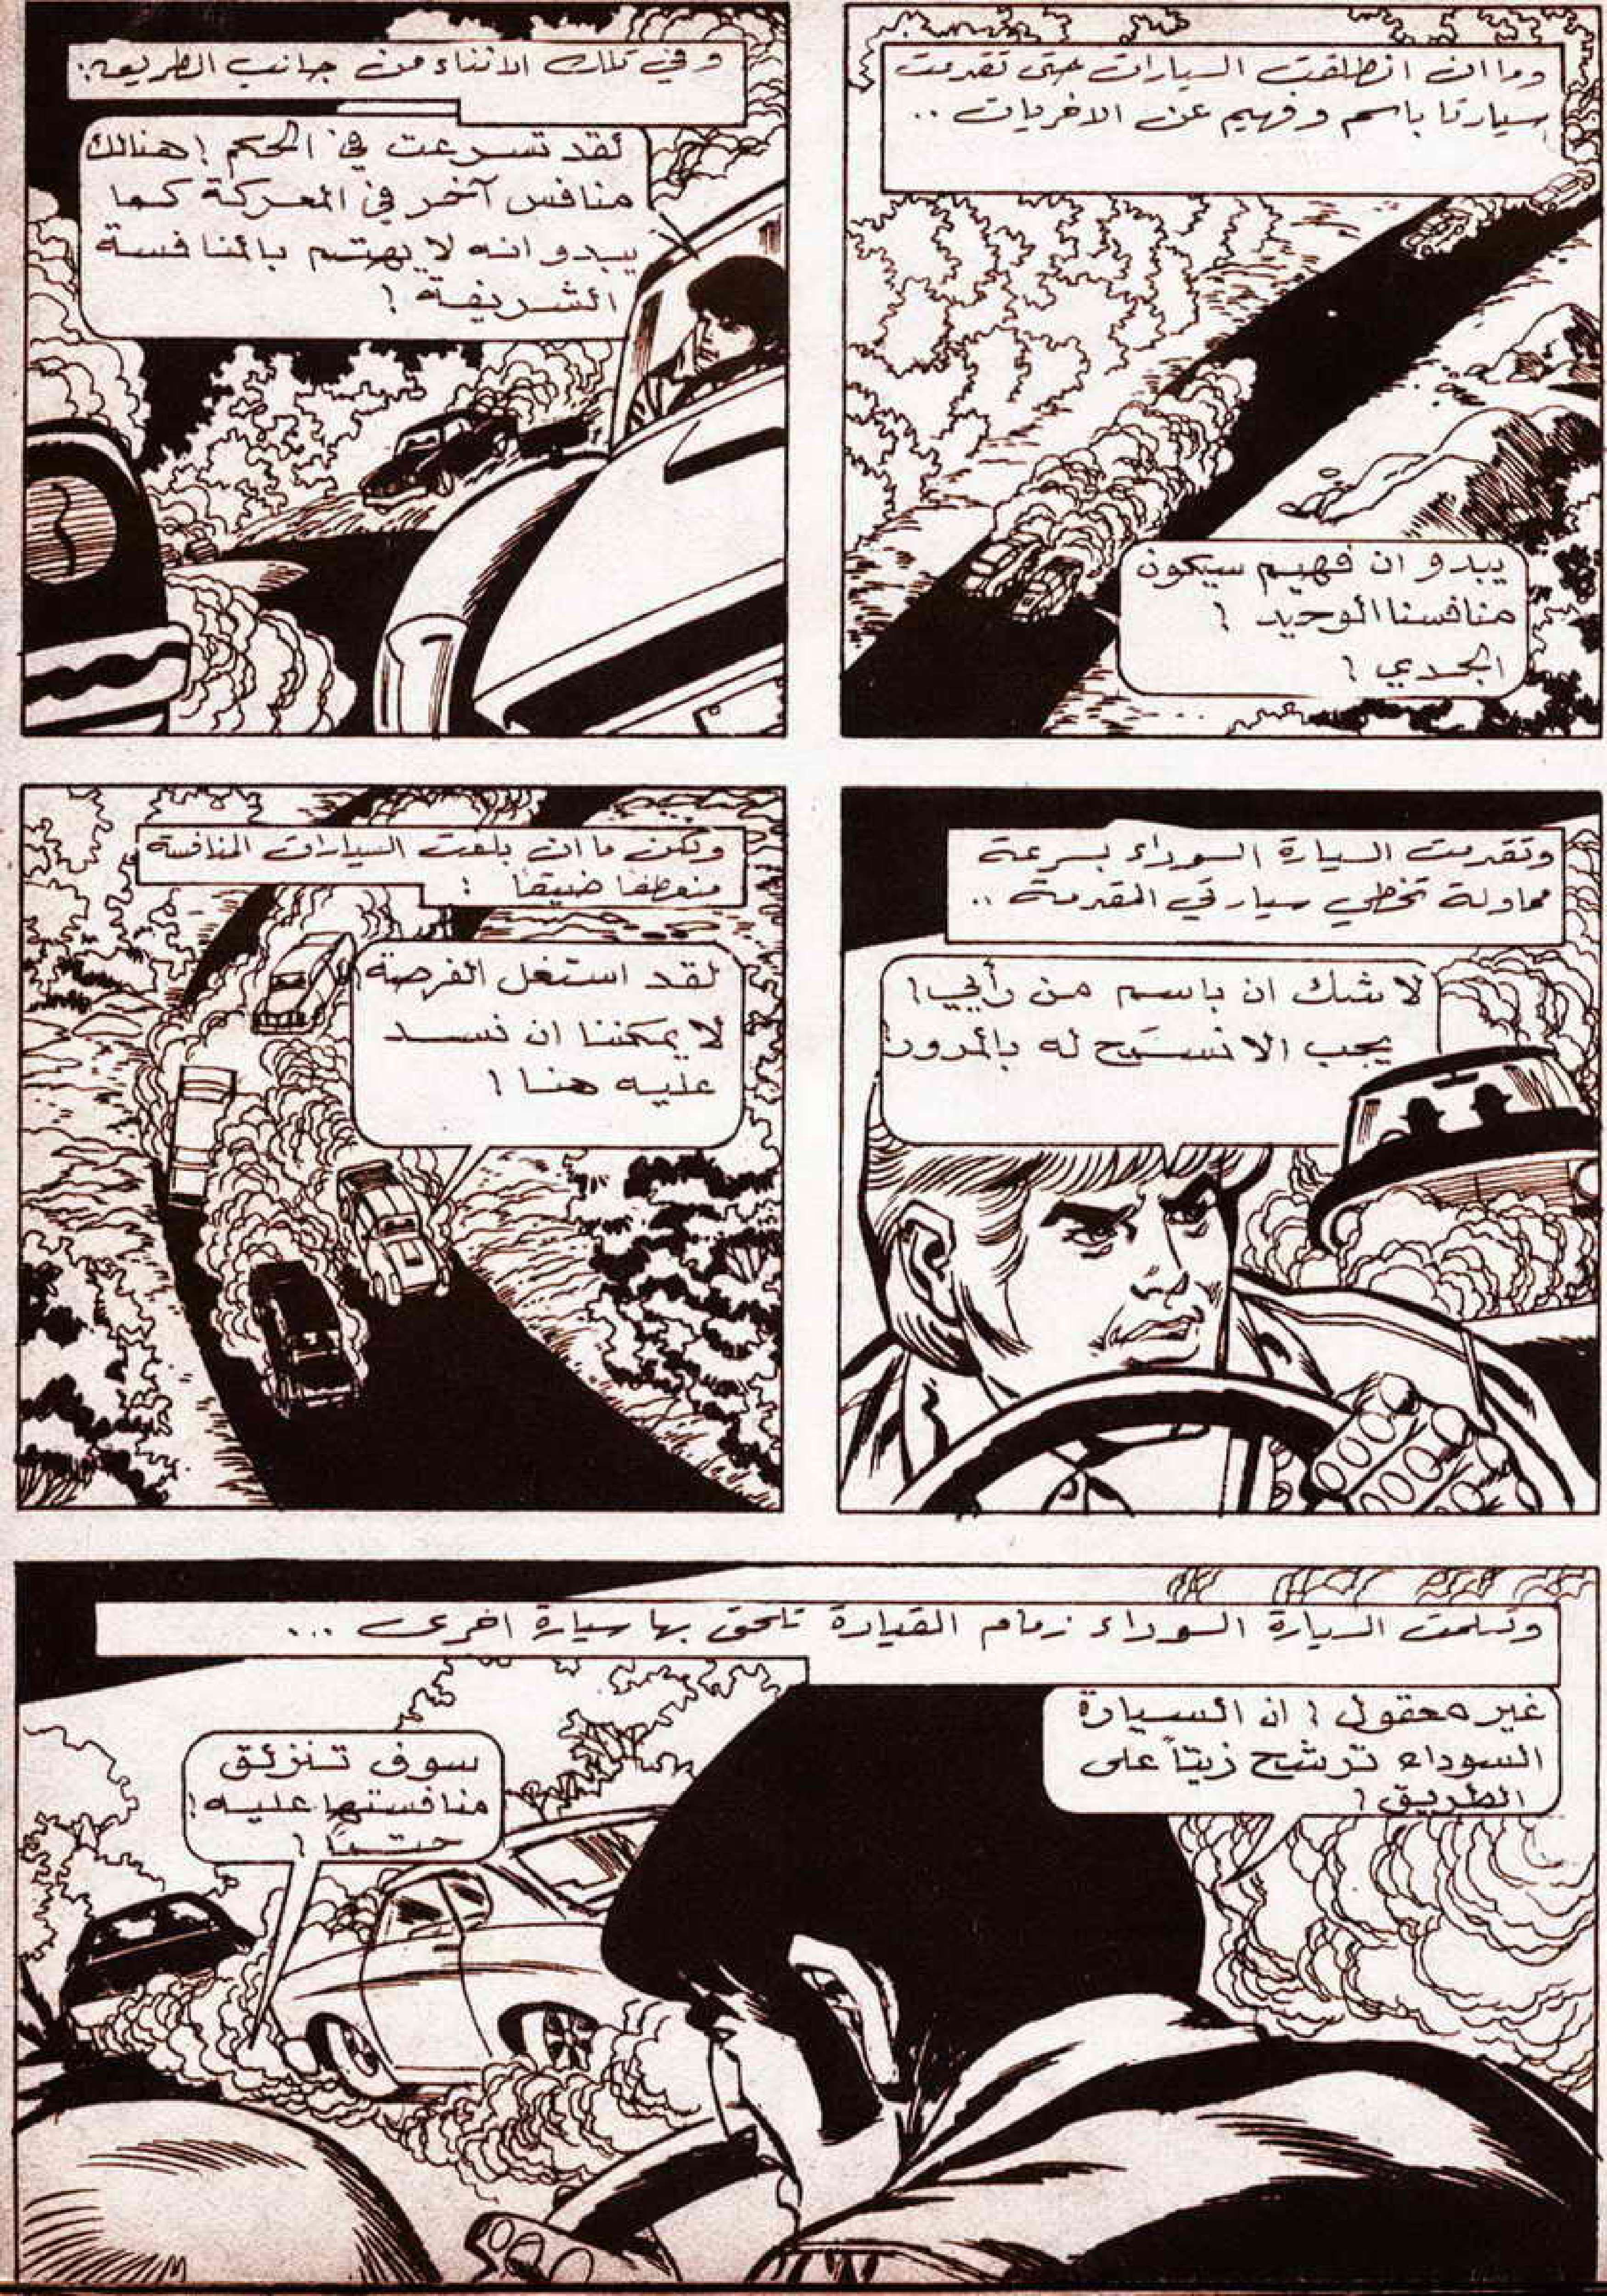 وما ان انطلقت السيارات حتى تقدمت
سيارتا باسم وفهيم عن الاخريات ..
يبدو ان فهيم سيكون
منافسنا الوحيد !
الجدي !
وفي تلك الاثناء من جانب الطريق:
لقد تسرعت في الحكم ! هنالك
منافس آخر في المعركة كما
يبدو انه لا يهتم بالمنافسة
الشريفة !
وتقدمت السيارة السوداء بسرعة
محاولة تخطي سيار في المقدمة ..
لا شك ان باسم من رأيي !
يجب الا نسمح له بالمرور
ولكن ما ان بلغت السيارات المنافسة
منعطفا ضيقا :
لقد استغل الفرصة
لا يمكننا ان نسد
عليه هنا !
وتسلمت السيارة السوداء زمام القيادة تلحق بها سيارة اخرى ...
غير معقول ! ان السيارة
السوداء ترشح زيتاً على
الطريق !
سوف تنزلق
منافستها عليه !
حتماً !